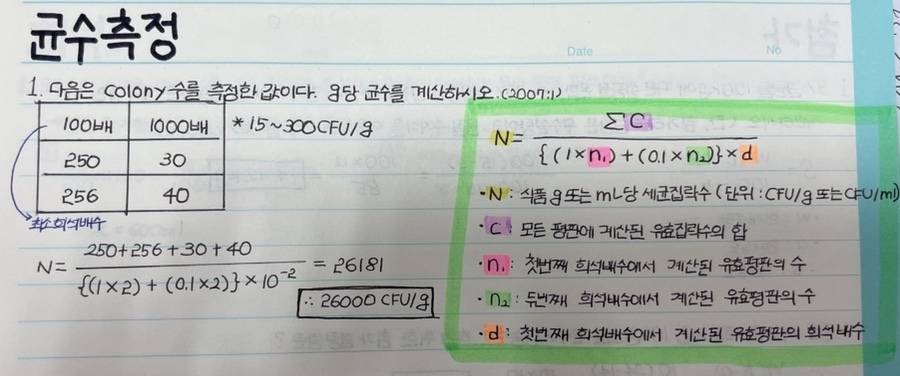 균수측정
Date
No
1. 다음은 colony 수를 측정한 값이다. g당 균수를 계산하시오. (2007.1)
100배 1000배 * 15~300CFU/g
250 30
256 40
최소희석배수
N = 250+256+30+40 / {(1×2) + (0.1×2)}×10⁻² = 26181
∴ 26000 CFU/g
N = ΣC / {(1×n₁)+(0.1×n₂)}×d
·N: 식품 g 또는 mL당 세균집락수 (단위 : CFU/g 또는 CFU/ml)
·C: 모든 평판에 계산된 유효집락수의 합
·n₁: 첫번째 희석배수에서 계산된 유효평판의 수
·n₂: 두번째 희석배수에서 계산된 유효평판의 수
·d: 첫번째 희석배수에서 계산된 유효평판의 희석배수